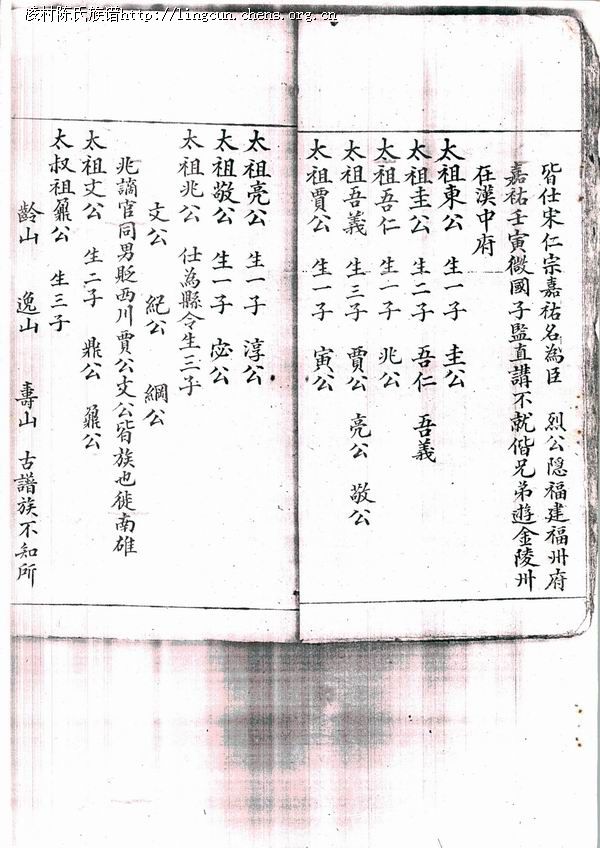 凌村陈氏族谱http://lingcun.chens.org.cn
皆仕宋仁宗嘉祐名為臣 烈公隐福建福州府
嘉祐壬寅徵國子監直講不就偕兄弟遊金陵州
在漢中府
太祖東公 生一子 圭公
太祖圭公 生二子 吾仁 吾義
太祖吾仁 生一子 兆公
太祖吾義 生三子 賈公 亮公 敬公
太祖賈公 生一子 寅公
太祖亮公 生一子 淳公
太祖敬公 生一子 宓公
太祖兆公 仕為縣令生三子
文公 紀公 綱公
兆謫官同男貶西川賈公文公皆族也徙南雄
太祖文公 生二子 鼎公 鼐公
太叔祖鼐公 生三子
齡山 逸山 壽山 古譜族不知所